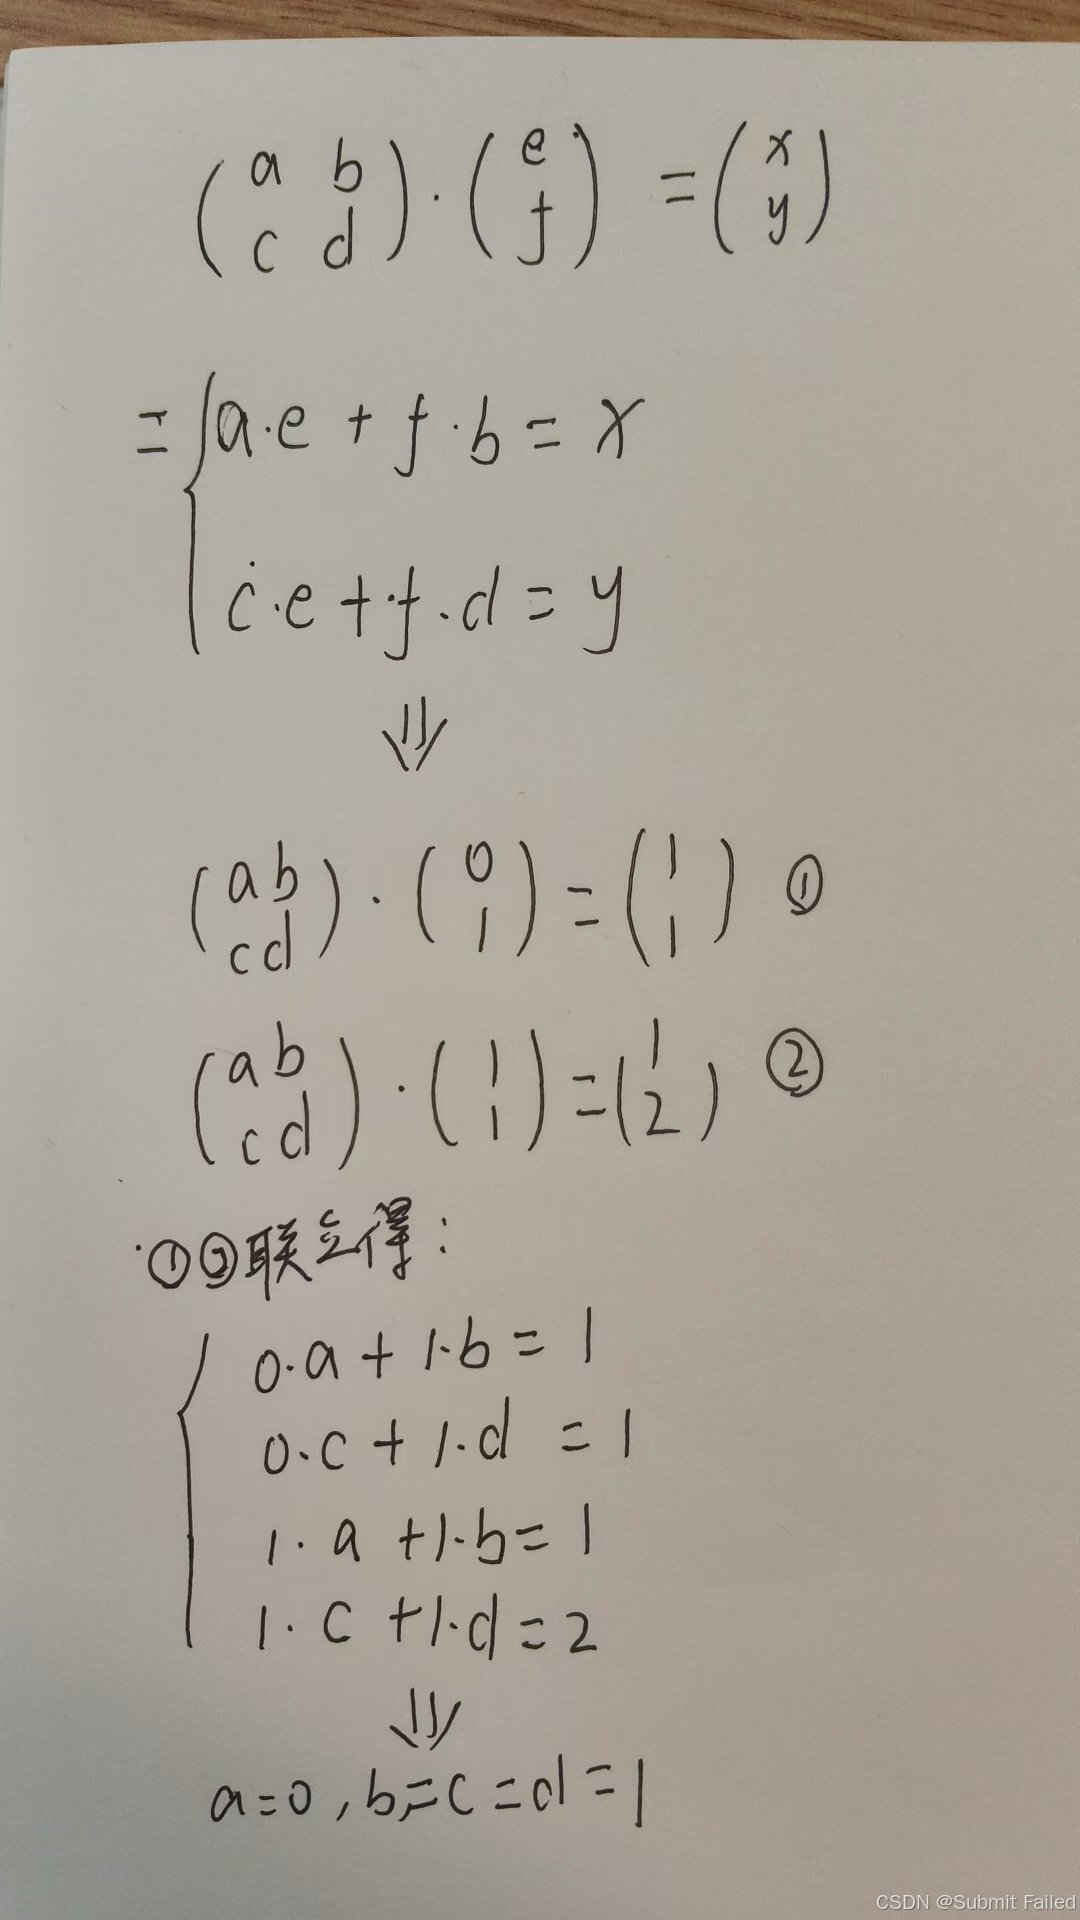 (a b
c d) · (e
f) = (x
y)
= {a·e + f·b = x
c·e + f·d = y
⇓
(a b
c d) · (0
1) = (1
1) ①
(a b
c d) · (1
1) = (1
2) ②
①②联立得:
{0·a + 1·b = 1
0·c + 1·d = 1
1·a + 1·b = 1
1·c + 1·d = 2
⇓
a=0, b=c=d=1
CSDN @Submit Failed